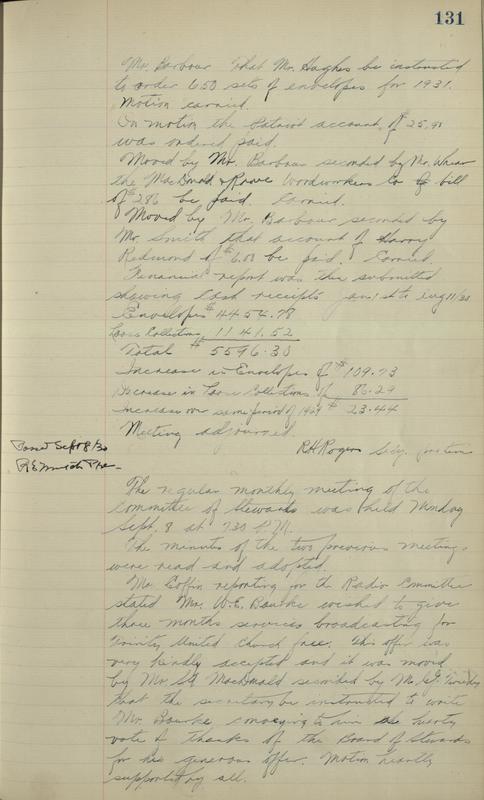 131
Mr. Barbour that Mr. Hughes be instructed
to order 650 sets of envelopes for 1931.
Motion carried.
On motion the Patriot account of $25.90
was ordered paid.
Moved by Mr. Barbour seconded by Mr.
the MacDonald & Rowe Woodworkers Co bill
of $286 be paid. Carried.
Moved by Mr. Barbour seconded by
Mr Smith that account of Harry
Redmond of $6.00 be paid. Carried.
Financial report was then submitted
showing Cash receipts Jan 1st to Aug 11/30
Envelopes $4454.78
Loose Collections 1141.52
Total $5596.30
Increase in Envelopes of $109.73
Decrease in Loose Collections of 86.29
Increase over same period of 1929 $23.44
Meeting adjourned.
RH Rogers Secy. pro tem
Sept 8/30
The regular monthly meeting of the
Committee of Stewards was held Monday
Sept. 8 at 7.30 P.M.
The minutes of the two previous meetings
were read and adopted.
Mr. Coffin reporting for the Radio Committee
stated Mr. W.E. Bourke wished to give
three months services broadcasting for
Trinity United Church free. This offer was
very kindly accepted and it was moved
by Mr. MacDonald seconded by Mr.
that the secretary be instructed to write
Mr. Bourke conveying to him the hearty
vote of thanks of the Board of Stewards
for his generous offer. Motion heartily
supported by all.